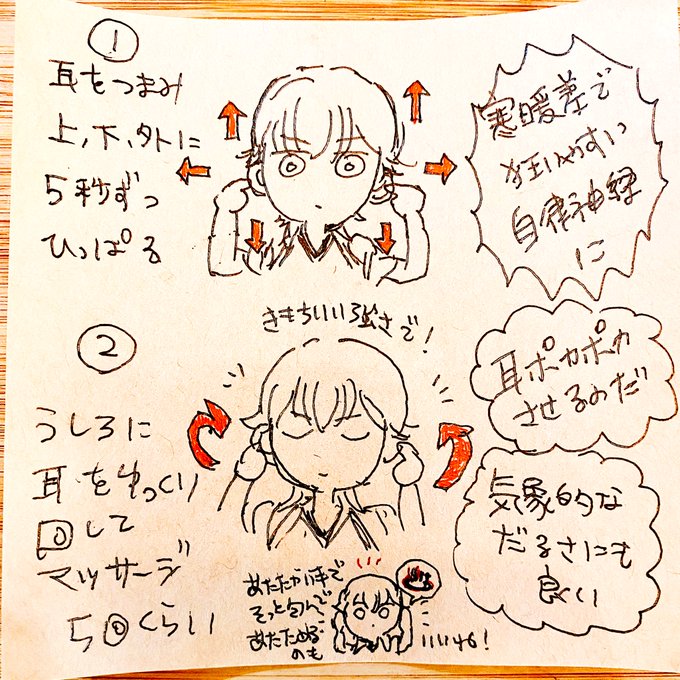 ①
耳をつまみ
上、下、外に
5秒ずつ
ひっぱる
寒暖差で
狂いやすい
自律神経
に
きもちいい強さで!
②
うしろに
耳をゆっくり
回して
マッサージ
5回くらい
耳ポカポカ
させるのだ
気象的な
だるさにも
良い
あたたかい手で
そっと包んで
あたためる
のも
いいよ!